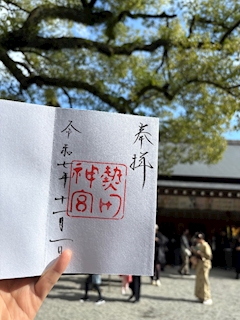 奉拝
熱田
神宮
令和七年十二月一日